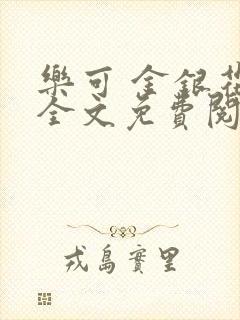 樂可 金銀花
全文免費閱
戎島實里